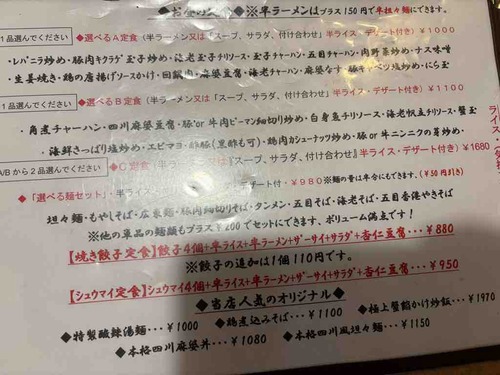 ※半ラーメンはプラス150円で半担々麺にできます。
1品選んでください ◆選べるA定食(半ラーメン又は「スープ、サラダ、付け合わせ」半ライス・デザート付き)¥1000
・レバニラ炒め・豚肉キクラゲ玉子炒め・海老玉子チリソース・玉子チャーハン・五目チャーハン・肉野菜炒め・ナス味噌
・生姜焼き・鶏の唐揚げソースかけ・回鍋肉・麻婆豆腐・海老チャーハン・麻婆なす・豚キャベツ塩炒め・にら玉
1品選んでください ◆選べるB定食(半ラーメン又は「スープ、サラダ、付け合わせ」半ライス・デザート付き)¥1100
・角煮チャーハン・四川麻婆豆腐・豚or牛肉ピーマン細切り炒め・白身魚チリソース・海老帆立チリソース・蟹玉
・海鮮さっぱり塩炒め・エビマヨ・酢豚(黒酢も可)・鶏肉カシューナッツ炒め・豚or牛ニンニクの芽炒め
A/Bから2品選んでください ◆C定食(半ラーメン又は『スープ、サラダ、付け合わせ』半ライス・デザート付き)¥1680
◆「選べる麺セット」・半ライス・デザート付・¥980 ※麺の量は半分にもできます。(¥50円引き)
坦々麺・もやしそば・広東麺・豚肉細切りそば・タンメン・五目そば・海老そば・五目香港やきそば
※他の単品の麺類もプラス¥200でセットにできます、ボリューム満点です!
【焼き餃子定食】餃子4個+半ライス+半ラーメン+ザーサイ+サラダ+杏仁豆腐・・・¥880
※餃子の追加は1個110円です。
【シュウマイ定食】シュウマイ4個+半ライス+半ラーメン+ザーサイ+サラダ+杏仁豆腐・・・¥950
◆当店人気のオリジナル◆
◆特製酸辣湯麺・・・¥1000 ◆鶏煮込みそば・・・¥1100 ◆極上蟹餡かけ炒飯・・・¥1970
◆本格四川麻婆丼・・・¥1080 ◆本格四川風坦々麺・・・¥1150